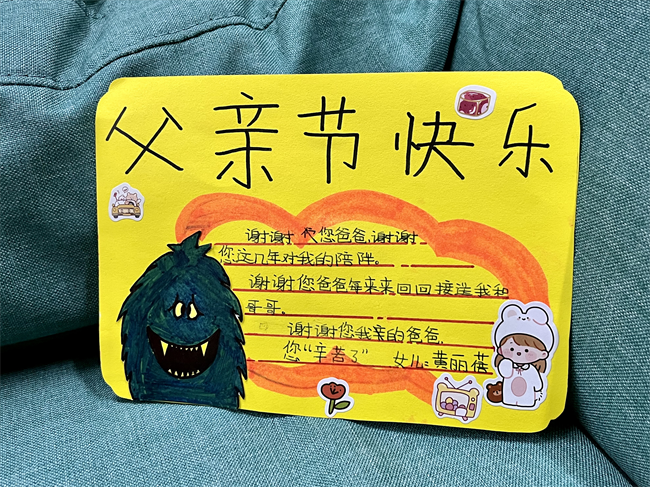 父亲节快乐
谢谢 您爸爸,谢谢
您这几年对我的陪伴。
谢谢您爸爸每年来来回回接送我和
哥哥。
谢谢您我亲的爸爸,
您“辛苦了” 女儿:黄丽蓓